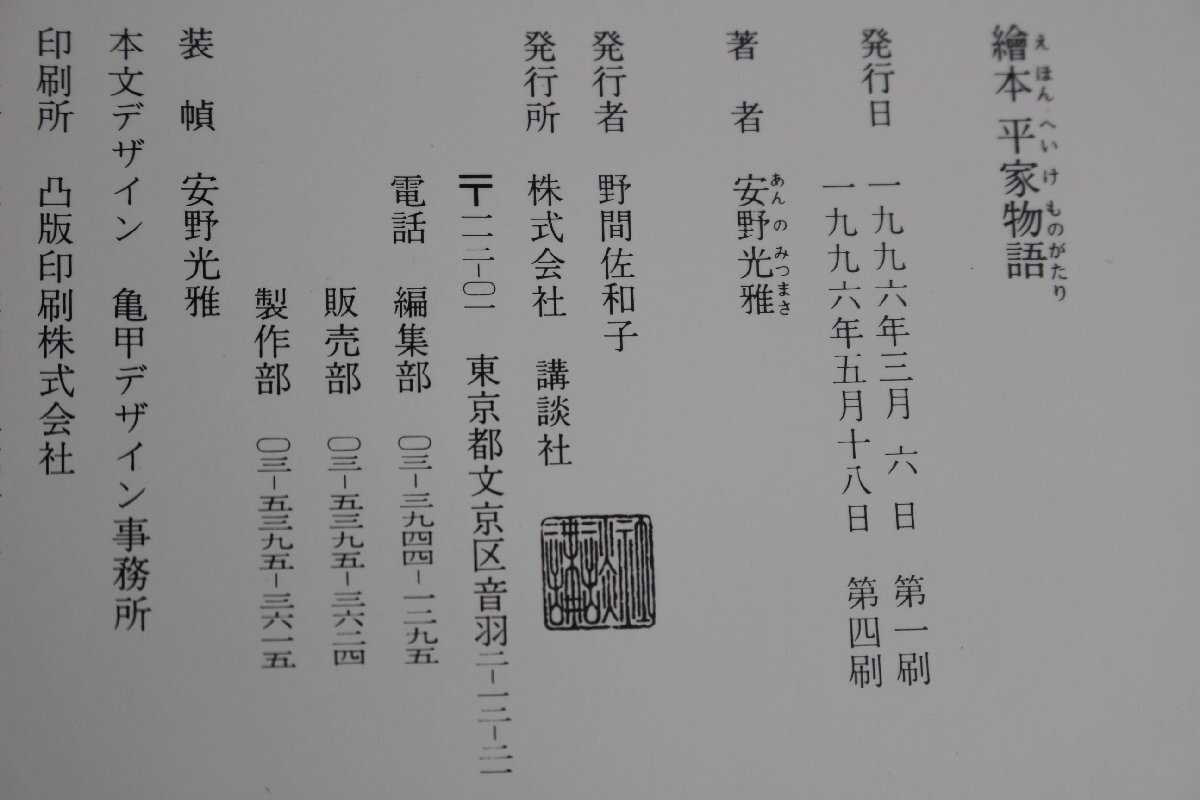 繪本 平家物語
えほん へいけものがたり
発行日 一九九六年三月 六日 第一刷
一九九六年五月十八日 第四刷
著者 安野光雅
あんの みつまさ
発行者 野間佐和子
発行所 株式会社 講談社
〒一一二-〇一 東京都文京区音羽二-一二-二一
電話 編集部 〇三-三九四四-一二九五
販売部 〇三-五三九五-三六二四
製作部 〇三-五三九五-三六一五
装幀 安野光雅
本文デザイン 亀甲デザイン事務所
印刷所 凸版印刷株式会社